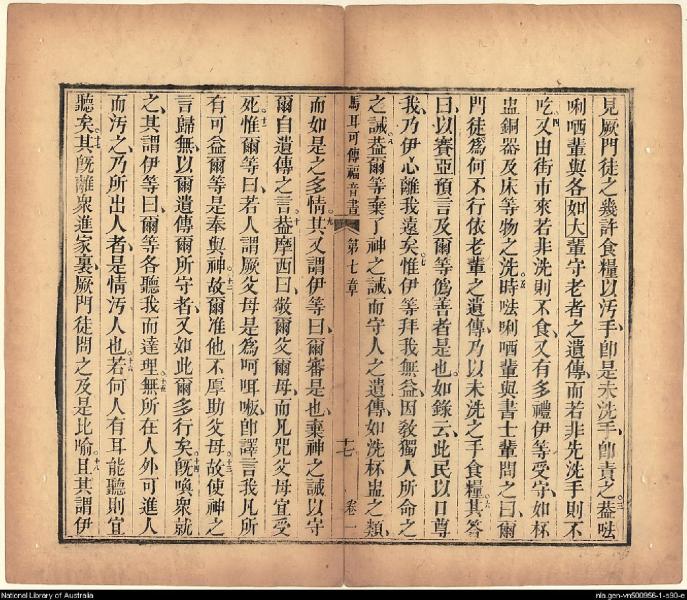 見厥門徒之幾許食糧以汚手、卽是未洗手、卽責之。三蓋𠵽
唎哂輩與各如大輩守老者之遺傳、而若非先洗手則不
吃。四又由街市來、若非洗則不食、又有多禮伊等受守、如杯
盅銅器及床等物之洗。五時𠵽唎哂輩與書士輩問之曰、爾
門徒爲何不行依老輩之遺傳、乃以未洗之手食糧。六其答
曰、以賽亞預言及爾等僞善者是也、如錄云、此民以口尊
我、乃伊心離我遠矣。七惟伊等拜我無益、因教獨人所命之
之誡。八蓋爾等棄了神之誡、而守人之遺傳、如洗杯盅之類、
而如是之多情。九其又謂伊等曰、爾審是也、棄神之誡以守
爾自遺傳之言。十蓋摩西曰、敬爾父爾母、而凡咒父母宜受
死。十一惟爾等曰、若人謂厥父母是爲呵咡𠸎、卽譯言我凡所
有可益爾等是奉與神。十二故爾准他不厚助父母。十三故使神之
言歸無、以爾遺傳爾所守者、又如此爾多行矣。十四旣喚衆就
之、其謂伊等曰、爾等各聽我而達理。十五無所在人外可進人
而汚之、乃所出人者、是情汚人也。十六若何人有耳能聽則宜
聽矣。十七其旣離衆進家裏、厥門徒問之及是比喻。十八且其謂伊
馬耳可傳福音書 第七章 十七 卷一
National Library of Australia
nla.gen-vn500956-1-s90-e